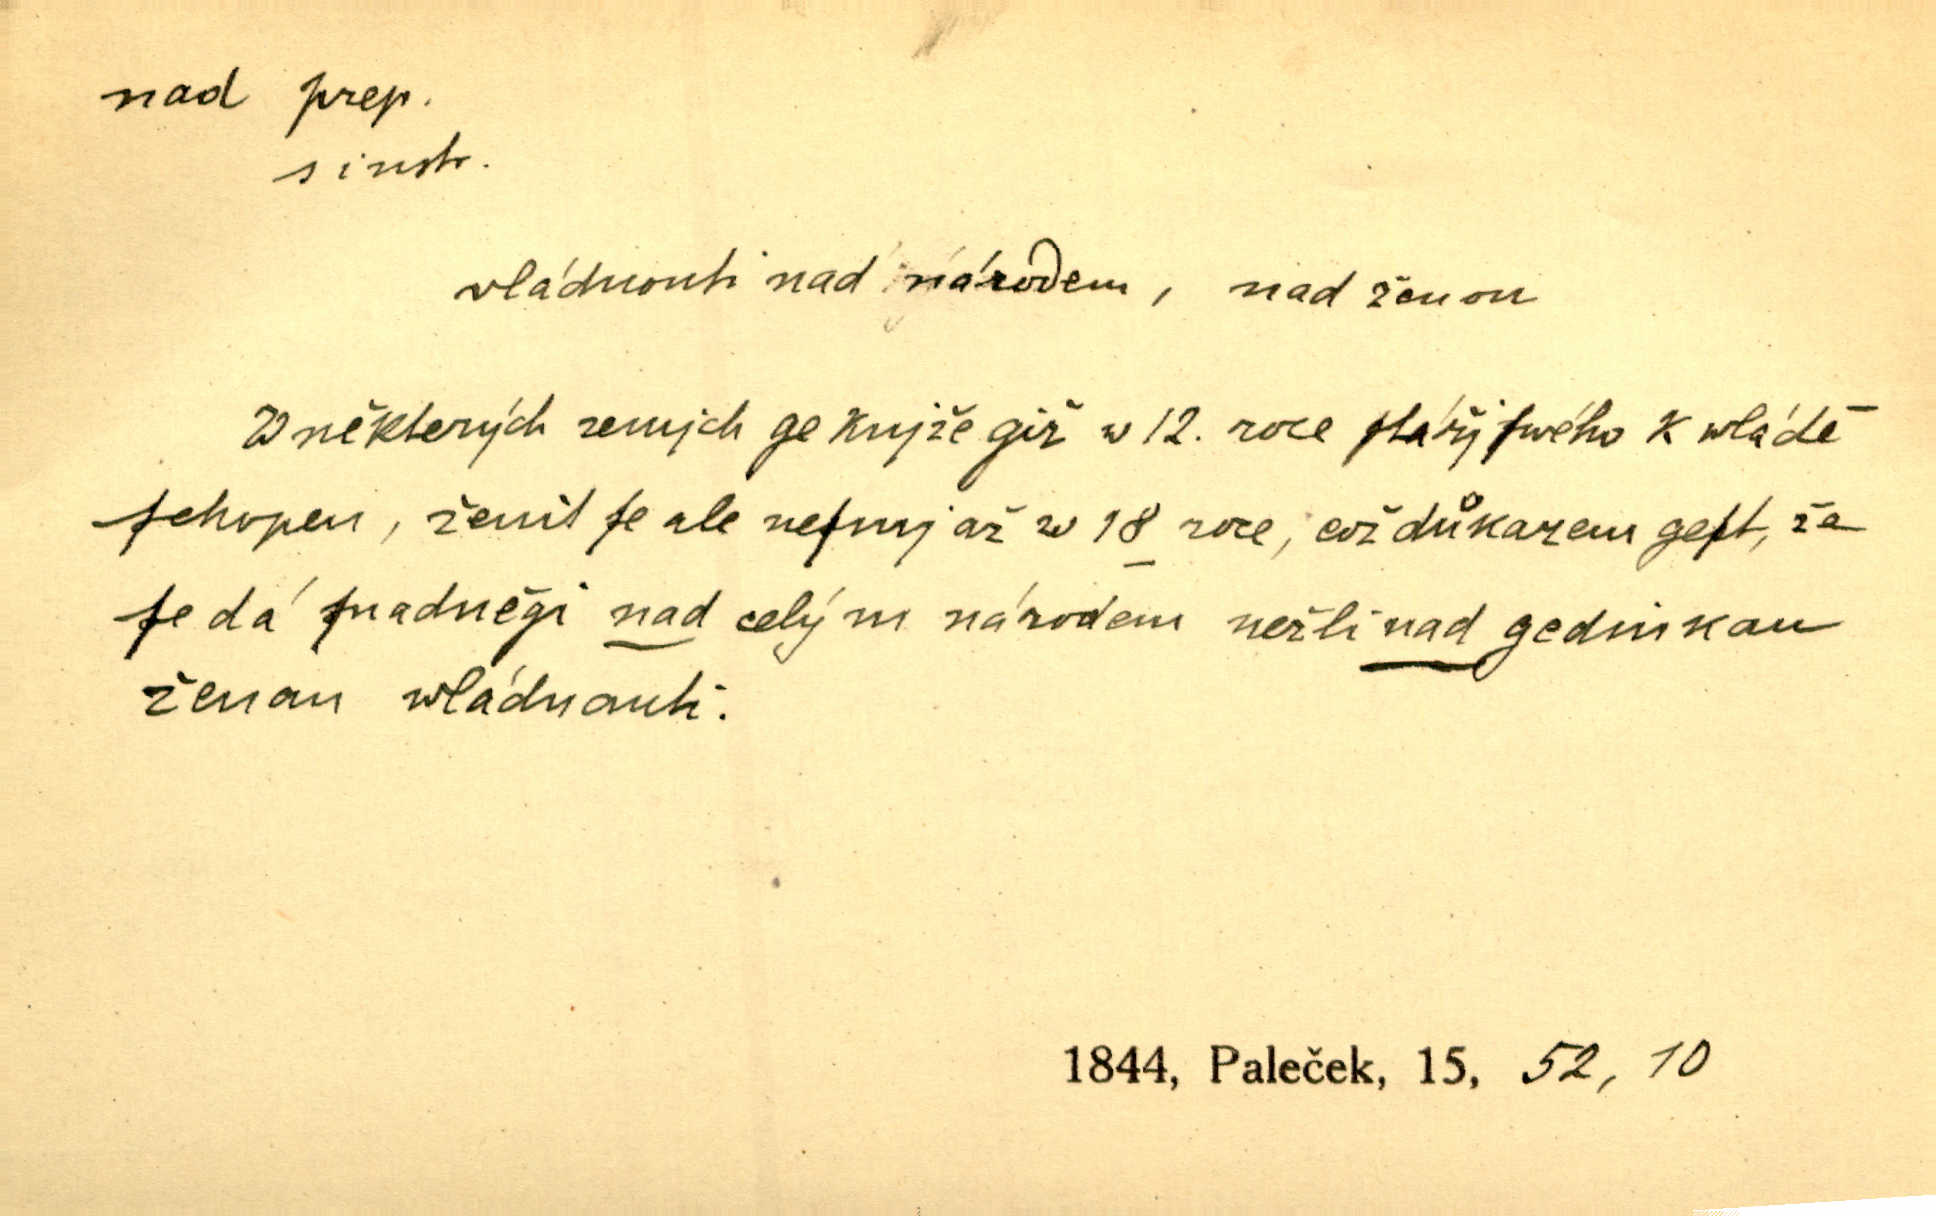 nad prep.
s instr.
vládnouti nad národem, nad ženou
W některých zemjch ge knjže giž w 12. roce ſtářj ſwého k wládě
ſchopen, ženit ſe ale neſmj až w 18 roce, což důkazem geſt, že
ſe dá ſnadněgi nad celým národem nežli nad gedinkau
ženau wládnauti.
1844, Paleček, 15, 52, 10